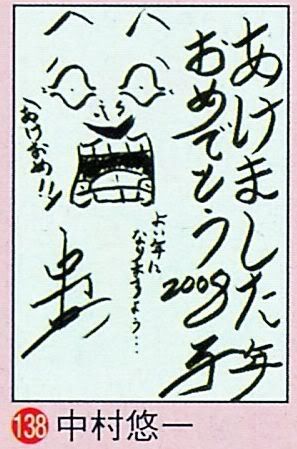 あけました
おめでとう
2008
子年
よい年に
なりますよう…
あけおめ!!
138 中村悠一